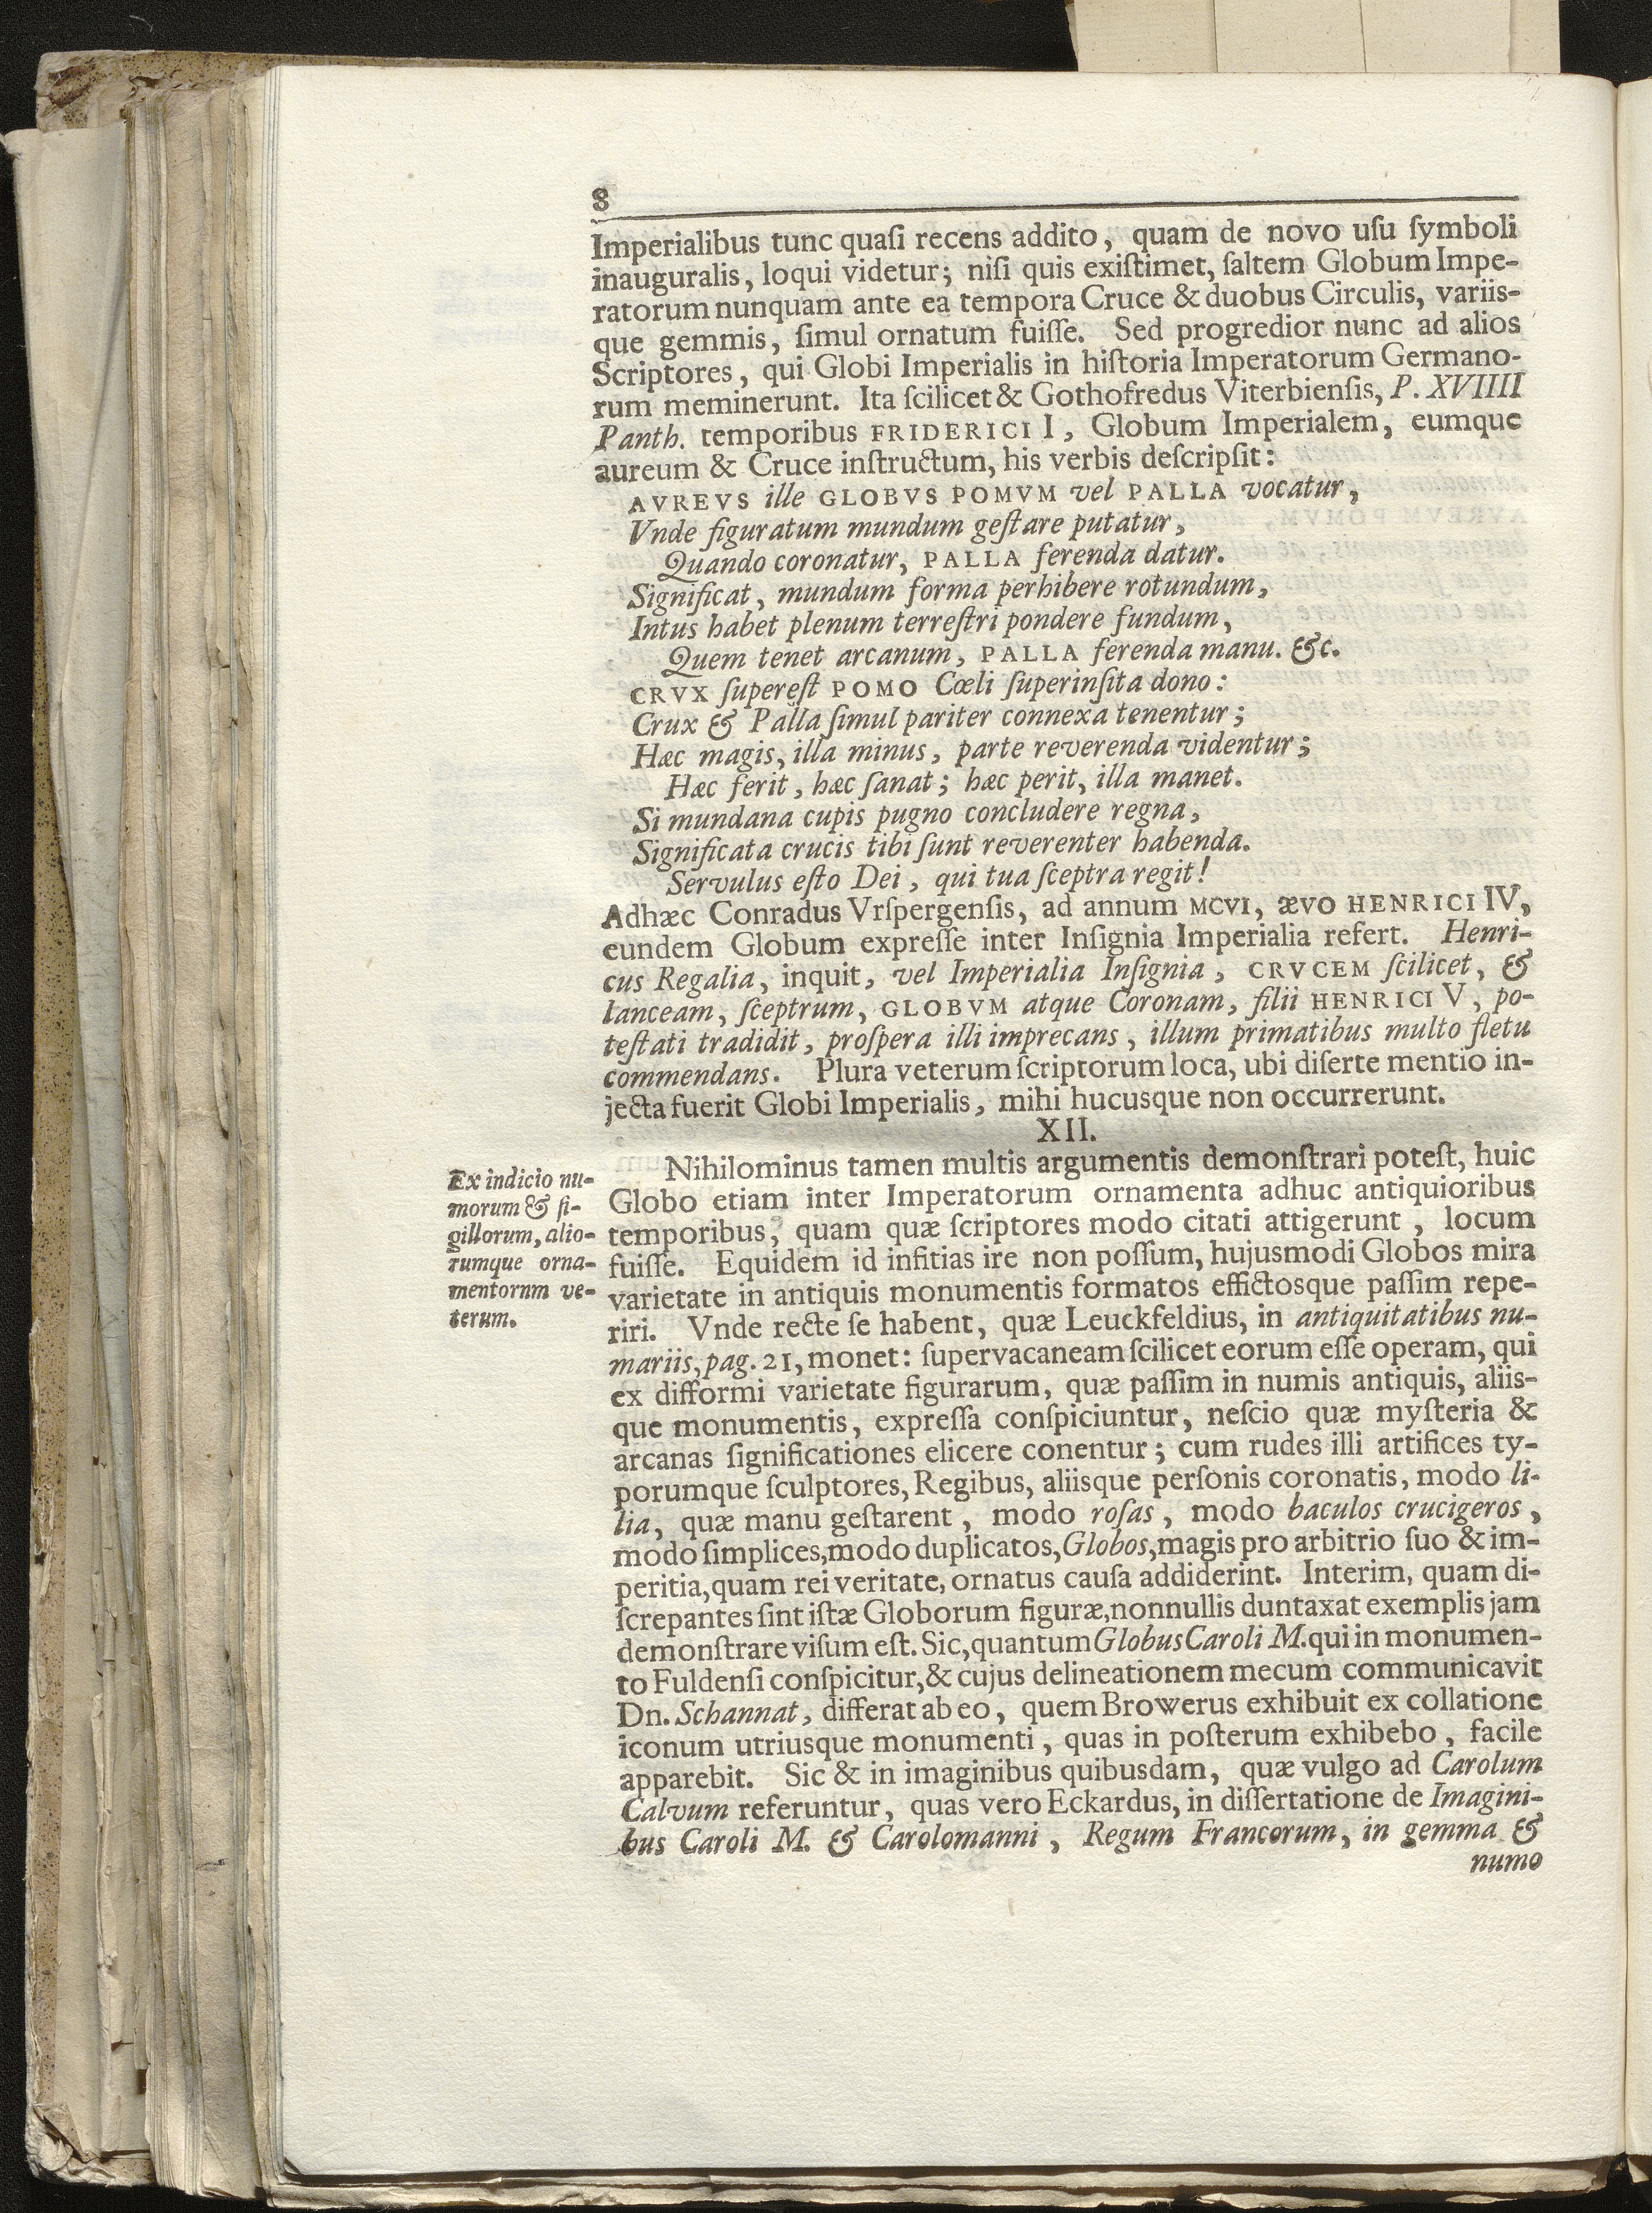 8
Imperialibus tunc quaſi recens addito, quam de novo uſu ſymboli
inauguralis, loqui videtur; niſi quis exiſtimet, ſaltem Globum Impe-
ratorum nunquam ante ea tempora Cruce & duobus Circulis, variis-
que gemmis, ſimul ornatum fuiſſe. Sed progredior nunc ad alios
Scriptores, qui Globi Imperialis in hiſtoria Imperatorum Germano-
rum meminerunt. Ita ſcilicet & Gothofredus Viterbienſis, P. XVIIII
Panth. temporibus FRIDERICI I, Globum Imperialem, eumque
aureum & Cruce inſtructum, his verbis deſcripſit:
AVREVS ille GLOBVS POMVM vel PALLA vocatur,
Vnde figuratum mundum geſtare putatur,
Quando coronatur, PALLA ferenda datur.
Significat, mundum forma perhibere rotundum,
Intus habet plenum terreſtri pondere fundum,
Quem tenet arcanum, PALLA ferenda manu. &c.
CRVX ſupereſt POMO Cœli ſuperinſita dono:
Crux & Palla ſimul pariter connexa tenentur;
Hæc magis, illa minus, parte reverenda videntur;
Hæc ferit, hæc ſanat; hæc perit, illa manet.
Si mundana cupis pugno concludere regna,
Significata crucis tibi ſunt reverenter habenda.
Servulus eſto Dei, qui tua ſceptra regit!
Adhæc Conradus Vrſpergenſis, ad annum MCVI, ævo HENRICI IV,
eundem Globum expreſſe inter Inſignia Imperialia refert. Henri-
cus Regalia, inquit, vel Imperialia Inſignia, CRVCEM ſcilicet, &
lanceam, ſceptrum, GLOBVM atque Coronam, filii HENRICI V, po-
teſtati tradidit, proſpera illi imprecans, illum primatibus multo fletu
commendans. Plura veterum ſcriptorum loca, ubi diſerte mentio in-
jecta fuerit Globi Imperialis, mihi hucusque non occurrerunt.
XII.
Ex indicio nu-
morum & ſi-
gillorum, alio-
rumque orna-
mentornm ve-
terum.
Nihilominus tamen multis argumentis demonſtrari poteſt, huic
Globo etiam inter Imperatorum ornamenta adhuc antiquioribus
temporibus, quam quæ ſcriptores modo citati attigerunt, locum
fuiſſe. Equidem id infitias ire non poſſum, hujusmodi Globos mira
varietate in antiquis monumentis formatos effictosque paſſim repe-
riri. Vnde recte ſe habent, quæ Leuckfeldius, in antiquitatibus nu-
mariis, pag. 21, monet: ſupervacaneam ſcilicet eorum eſſe operam, qui
ex difformi varietate figurarum, quæ paſſim in numis antiquis, aliis-
que monumentis, expreſſa conſpiciuntur, neſcio quæ myſteria &
arcanas ſignificationes elicere conentur; cum rudes illi artifices ty-
porumque ſculptores, Regibus, aliisque perſonis coronatis, modo li-
lia, quæ manu geſtarent, modo roſas, modo baculos crucigeros,
modo ſimplices, modo duplicatos, Globos, magis pro arbitrio ſuo & im-
peritia, quam rei veritate, ornatus cauſa addiderint. Interim, quam di-
ſcrepantes ſint iſtæ Globorum figuræ, nonnullis duntaxat exemplis jam
demonſtrare viſum eſt. Sic, quantum Globus Caroli M. qui in monumen-
to Fuldenſi conſpicitur, & cujus delineationem mecum communicavit
Dn. Schannat, differat ab eo, quem Browerus exhibuit ex collatione
iconum utriusque monumenti, quas in poſterum exhibebo, facile
apparebit. Sic & in imaginibus quibusdam, quæ vulgo ad Carolum
Calvum referuntur, quas vero Eckardus, in diſſertatione de Imagini-
bus Caroli M. & Carolomanni, Regum Francorum, in gemma &
numo